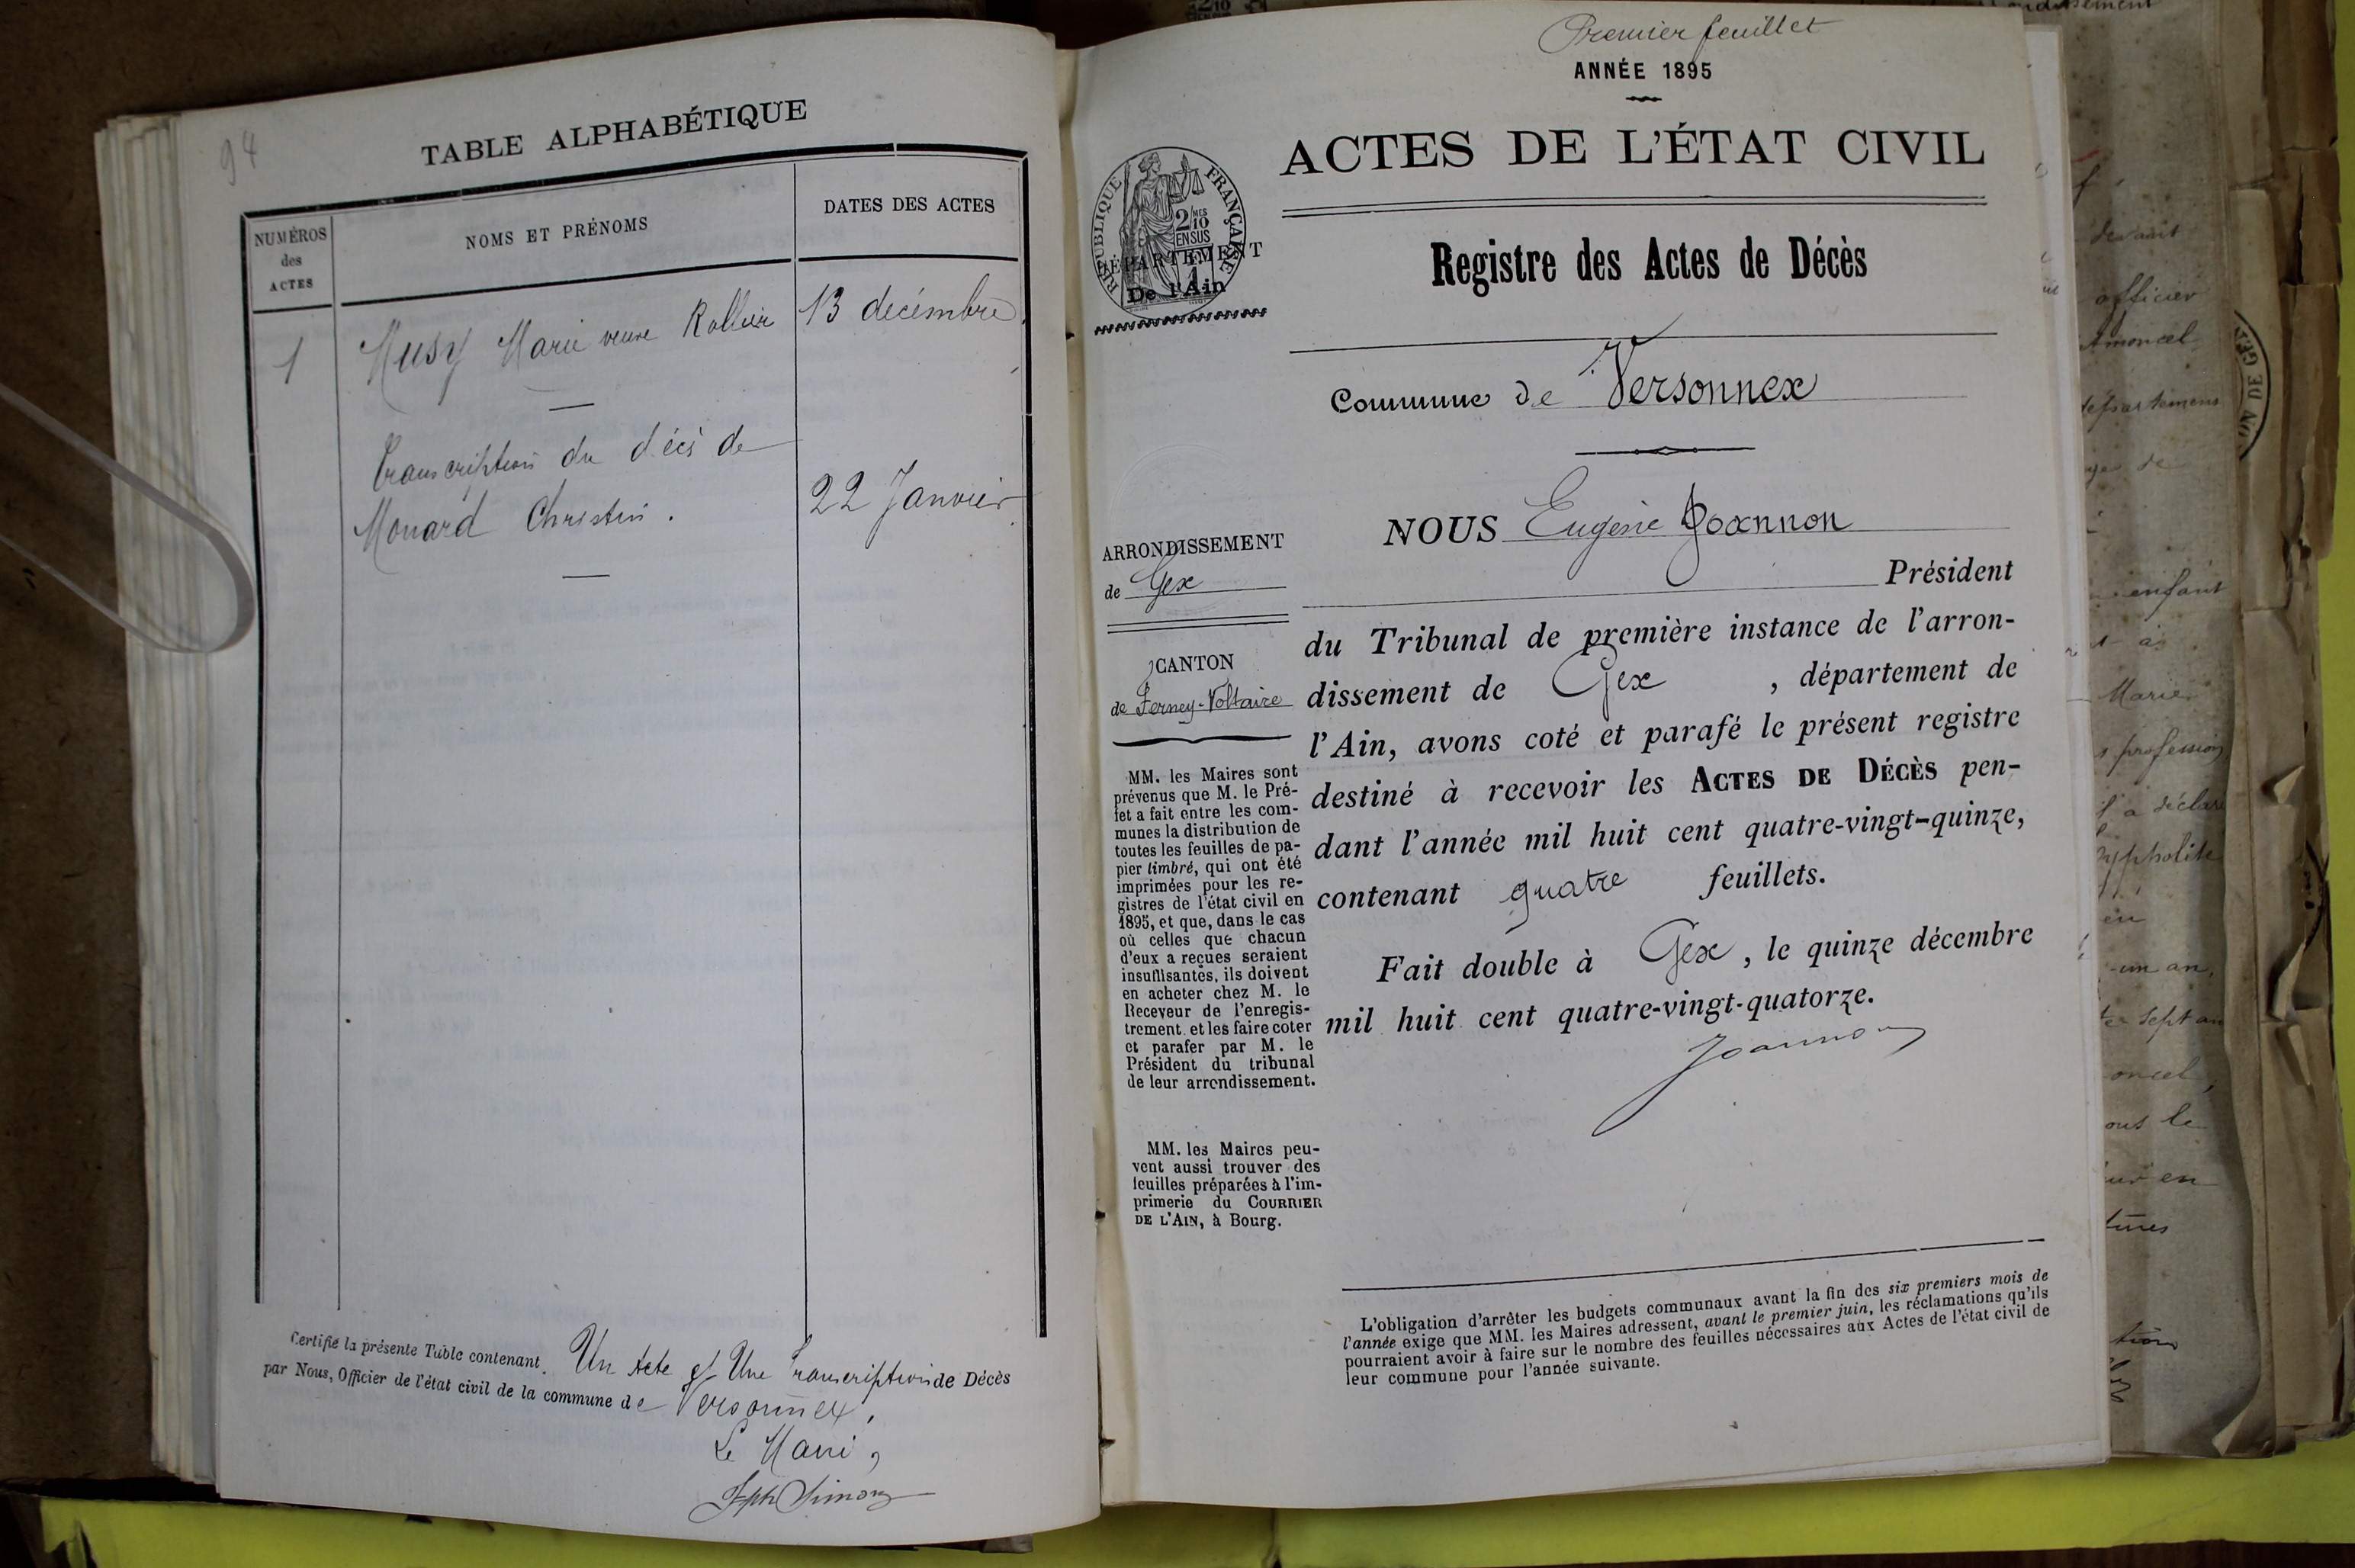 94
TABLE ALPHABÉTIQUE
NUMÉROS
des
ACTES
NOMS ET PRÉNOMS
DATES DES ACTES
1
Musy Marie veuve Rollier
13 decémbre
Transcription du décès de
Monard Christin.
22 Janvier
Certifié la présente Table contenant Un Acte et Une Transcription de Décès
par Nous, Officier de l'état civil de la commune de Versonnex,
Le Maire,
Jph Simon
Premier feuillet
ANNÉE 1895
ACTES DE L'ÉTAT CIVIL
RÉPUBLIQUE FRANÇAISE
2/10
EN SUS
DÉPARTEMENT
De l'Ain
Registre des Actes de Décès
Commune de Versonnex
NOUS Eugène Joannon
Président
du Tribunal de première instance de l'arron-
dissement de Gex , département de
l'Ain, avons coté et parafé le présent registre
destiné à recevoir les ACTES DE DÉCÈS pen-
dant l'année mil huit cent quatre-vingt-quinze,
contenant quatre feuillets.
Fait double à Gex, le quinze décembre
mil huit cent quatre-vingt-quatorze.
Joannon
ARRONDISSEMENT
de Gex
CANTON
de Ferney-Voltaire
MM. les Maires sont
prévenus que M. le Pré-
fet a fait entre les com-
munes la distribution de
toutes les feuilles de pa-
pier timbré, qui ont été
imprimées pour les re-
gistres de l'état civil en
1895, et que, dans le cas
où celles que chacun
d'eux a reçues seraient
insuffisantes, ils doivent
en acheter chez M. le
Receveur de l'enregis-
trement et les faire coter
et parafer par M. le
Président du tribunal
de leur arrondissement.
MM. les Maires peu-
vent aussi trouver des
feuilles préparées à l'im-
primerie du COURRIER
DE L'AIN, à Bourg.
L'obligation d'arrêter les budgets communaux avant la fin des six premiers mois de
l'année exige que MM. les Maires adressent, avant le premier juin, les réclamations qu'ils
pourraient avoir à faire sur le nombre des feuilles nécessaires aux Actes de l'état civil de
leur commune pour l'année suivante.
devant
officier
enfant
Marie
profession
a déclaré
un an,
sept an